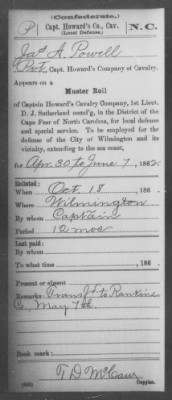 (Confederate.)
P Capt. Howard's Co., Cav. N. C.
(Local Defense.)
Jas A. Powell
Pvt, Capt. Howard's Company of Cavalry.
Appears on a
Muster Roll
of Captain Howard's Cavalry Company, 1st Lieut.
D. J. Sutherland comd'g, in the District of
the Cape Fear of North Carolina, for local defense
and special service. To be employed for the
defense of the City of Wilmington and its
vicinity, extending to the sea coast,
for Apr 30 to June 7, 186
Enlisted:
When Oct. 18, 186 .
Where Wilmington
By whom Captain
Period 12 mos
Last paid:
By whom
To what time , 186 .
Present or absent
Remarks: Transf'd to Rankins
Co, May 7th.
Book mark:
T. D. McCaw
Copyist.